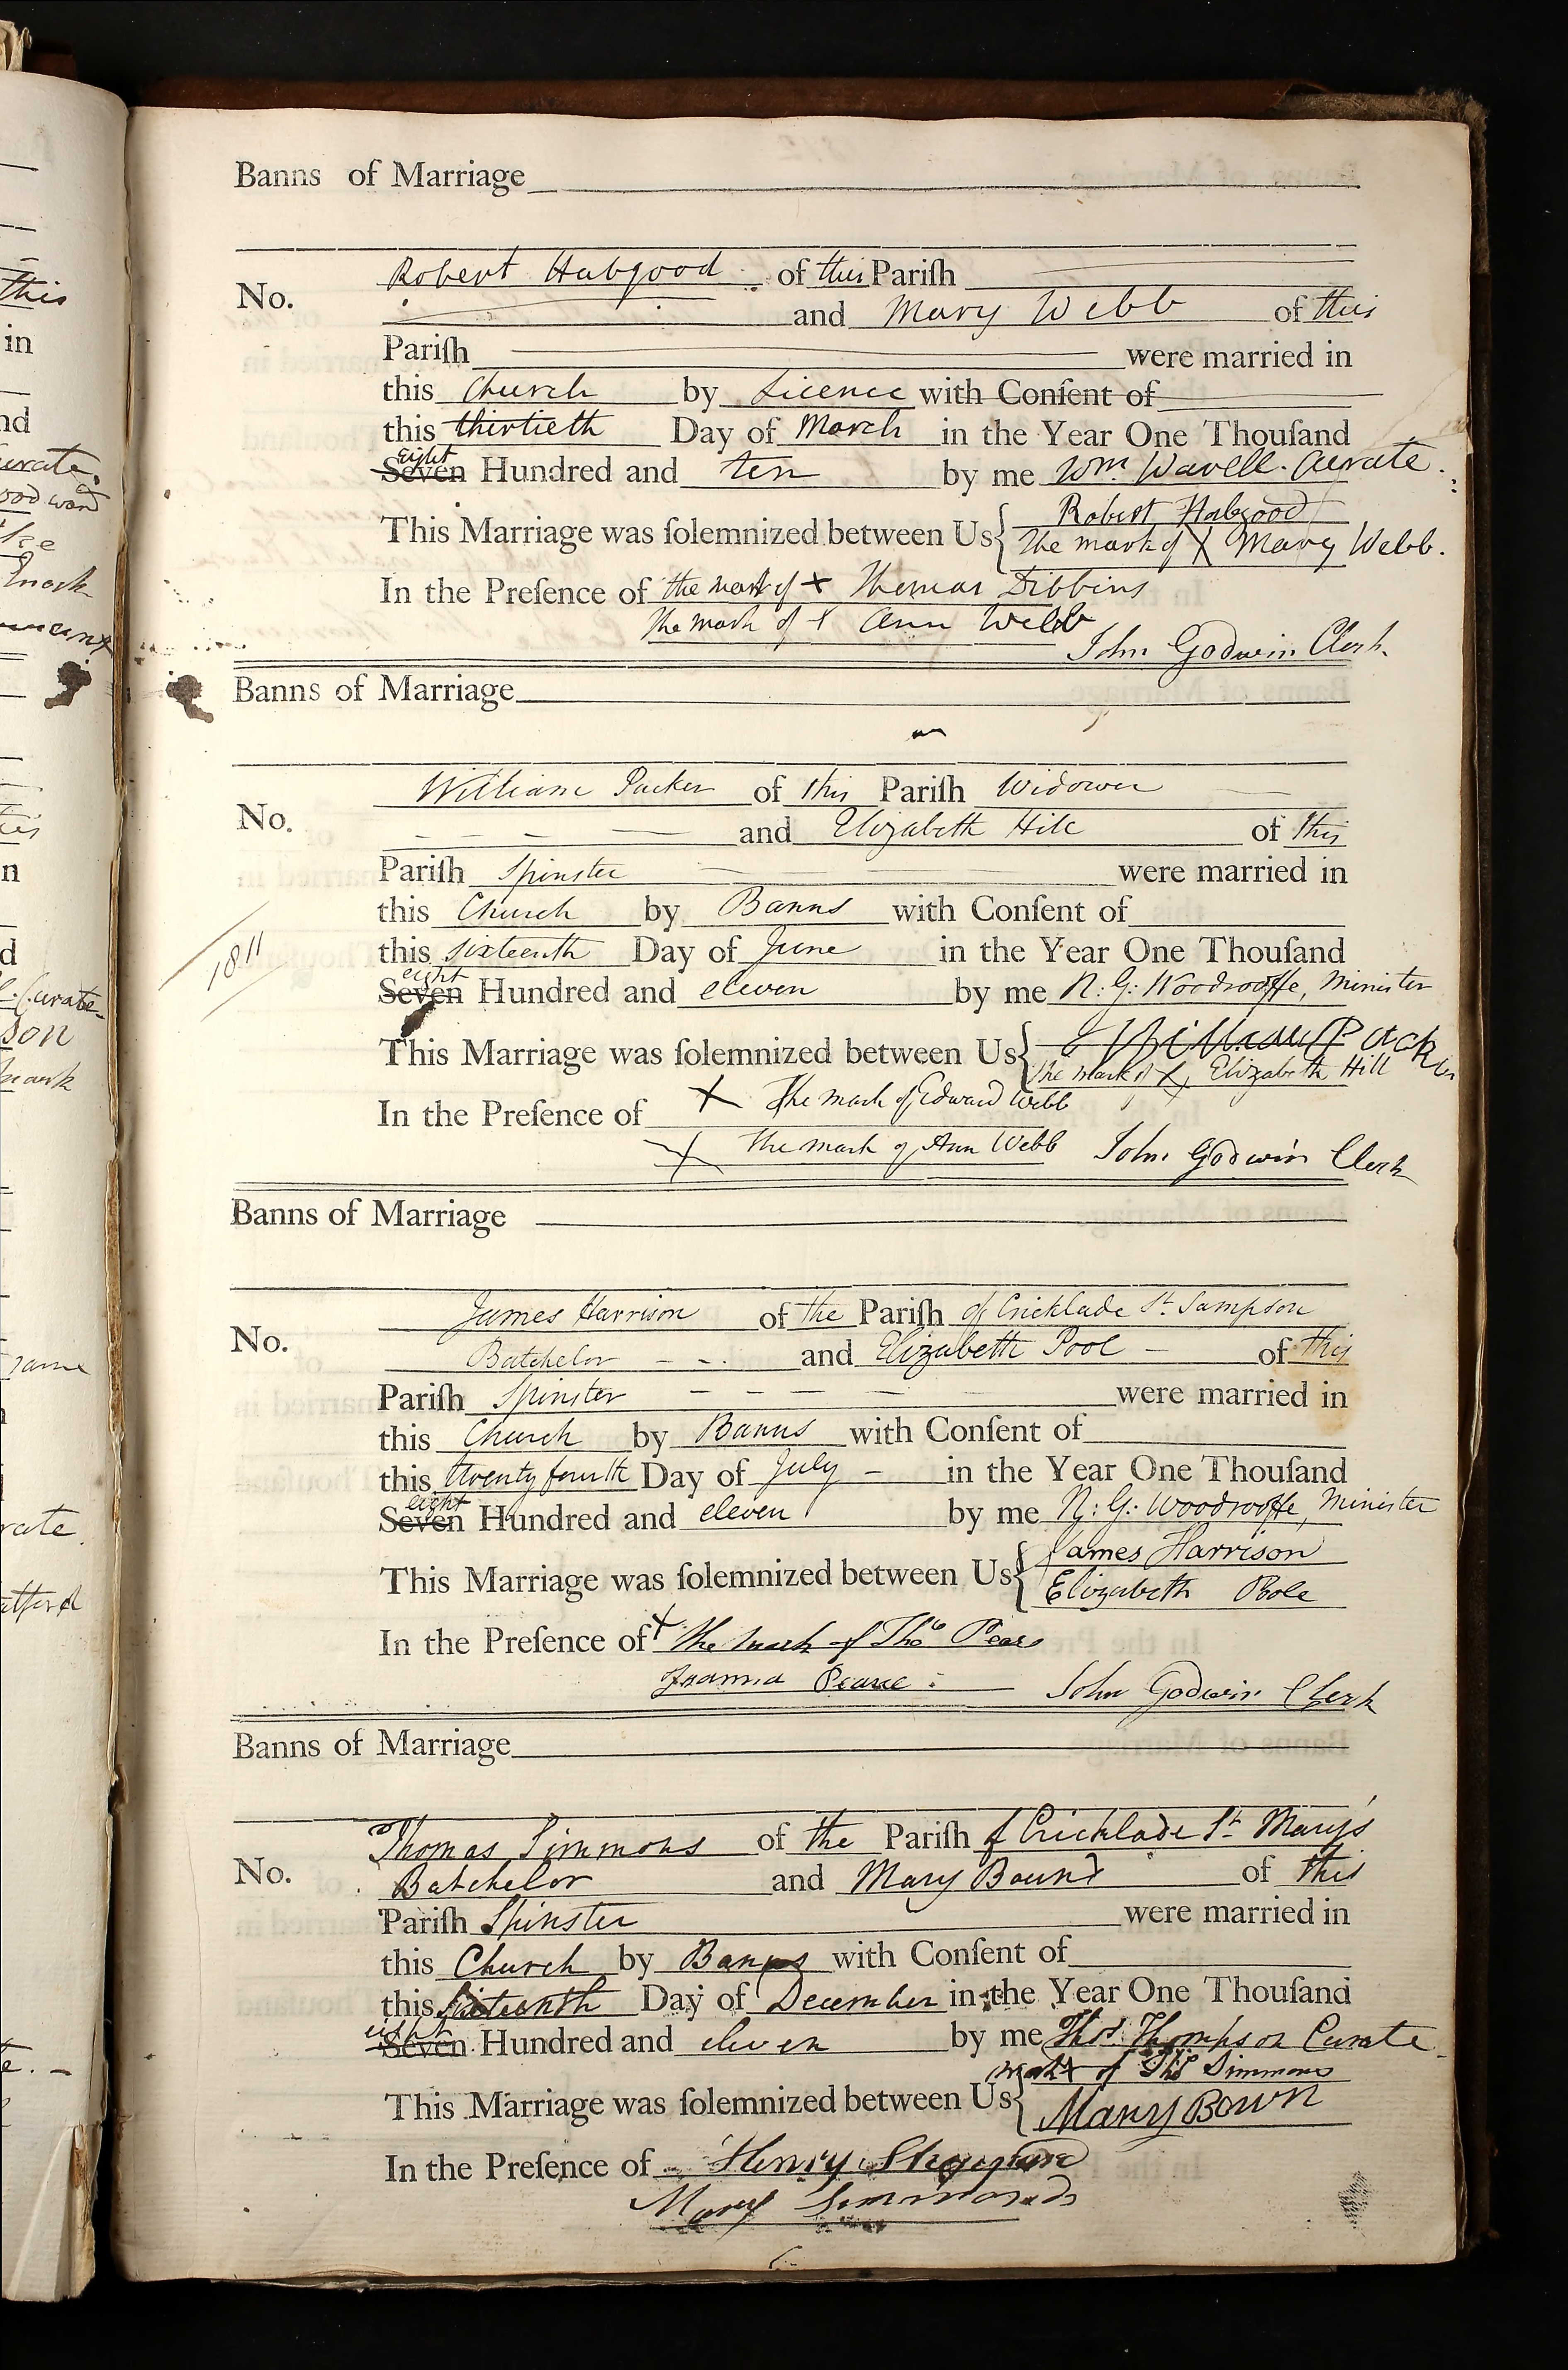 Banns of Marriage
No. Robert Habgood of this Pariſh
and Mary Webb of this
Pariſh were married in
this Church by Licence with Conſent of
this thirtieth Day of March in the Year One Thouſand
Eight
Seven Hundred and ten by me Wm. Wavell. Curate.
This Marriage was ſolemnized between Us { Robert Habgood
The mark of X Mary Webb.
In the Preſence of the mark of + Thomas Dibbins
The mark of + Ann Webb
John Godwin Clerk.
Banns of Marriage
No. William Packer of this Pariſh Widower
and Elizabeth Hill of this
Pariſh Spinster were married in
this Church by Banns with Conſent of
1811
this sixteenth Day of June in the Year One Thouſand
eight
Seven Hundred and eleven by me N: G: Woodrooffe, Minister
This Marriage was ſolemnized between Us { William Packer
The mark of X Elizabeth Hill
In the Preſence of X The mark of Edward Webb
X The mark of Ann Webb John Godwin Clerk
Banns of Marriage
No. James Harrison of the Pariſh of Cricklade St. Sampson
Batchelor and Elizabeth Pool of this
Pariſh Spinster were married in
this Church by Banns with Conſent of
this twenty fourth Day of July in the Year One Thouſand
eight
Seven Hundred and eleven by me N: G: Woodrooffe, Minister
This Marriage was ſolemnized between Us { James Harrison
Elizabeth Pole
In the Preſence of X The mark of Thos Pears
Pearce
John Godwin Clerk
Banns of Marriage
No. Thomas Simmons of the Pariſh of Cricklade St. Mary's
Batchelor and Mary Bound of this
Pariſh Spinster were married in
this Church by Banns with Conſent of
this Day of December in the Year One Thouſand
eight
Seven Hundred and eleven by me Thos. Thompson Curate
mark X of Thos Simmons
This Marriage was ſolemnized between Us { Mary Bown
In the Preſence of Henry
Mary Simmonds